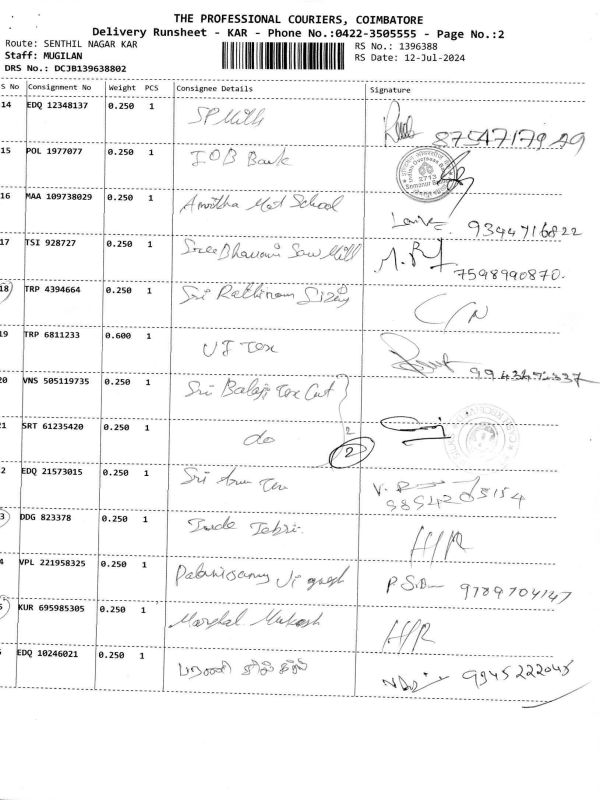 THE PROFESSIONAL COURIERS, COIMBATORE
Delivery Runsheet - KAR - Phone No.:0422-3505555 - Page No.:2
Route: SENTHIL NAGAR KAR
RS No.: 1396388
Staff: MUGILAN
RS Date: 12-Jul-2024
DRS No.: DCJB139638802
S No Consignment No Weight PCS Consignee Details Signature
14 EDQ 12348137 0.250 1 SP Mills
15 POL 1977077 0.250 1 IOB Bank
16 MAA 109738029 0.250 1 Amritha Mat School 9344716822
17 TSI 928727 0.250 1 Sree Bhavani Saw Mill 7598990870.
18 TRP 4394664 0.250 1 Sri Rathinam Sizing C/N
19 TRP 6811233 0.600 1 VJ Tex
20 VNS 505119735 0.250 1 Sri Balaji Tex Cut
21 SRT 61235420 0.250 1 do 2
2 EDQ 21573015 0.250 1 Sri Tex
3 DDG 823378 0.250 1 H/R
4 VPL 221958325 0.250 1 Palanisamy 9789704147
5 KUR 695985305 0.250 1 H/R
EDQ 10246021 0.250 1 9945222045